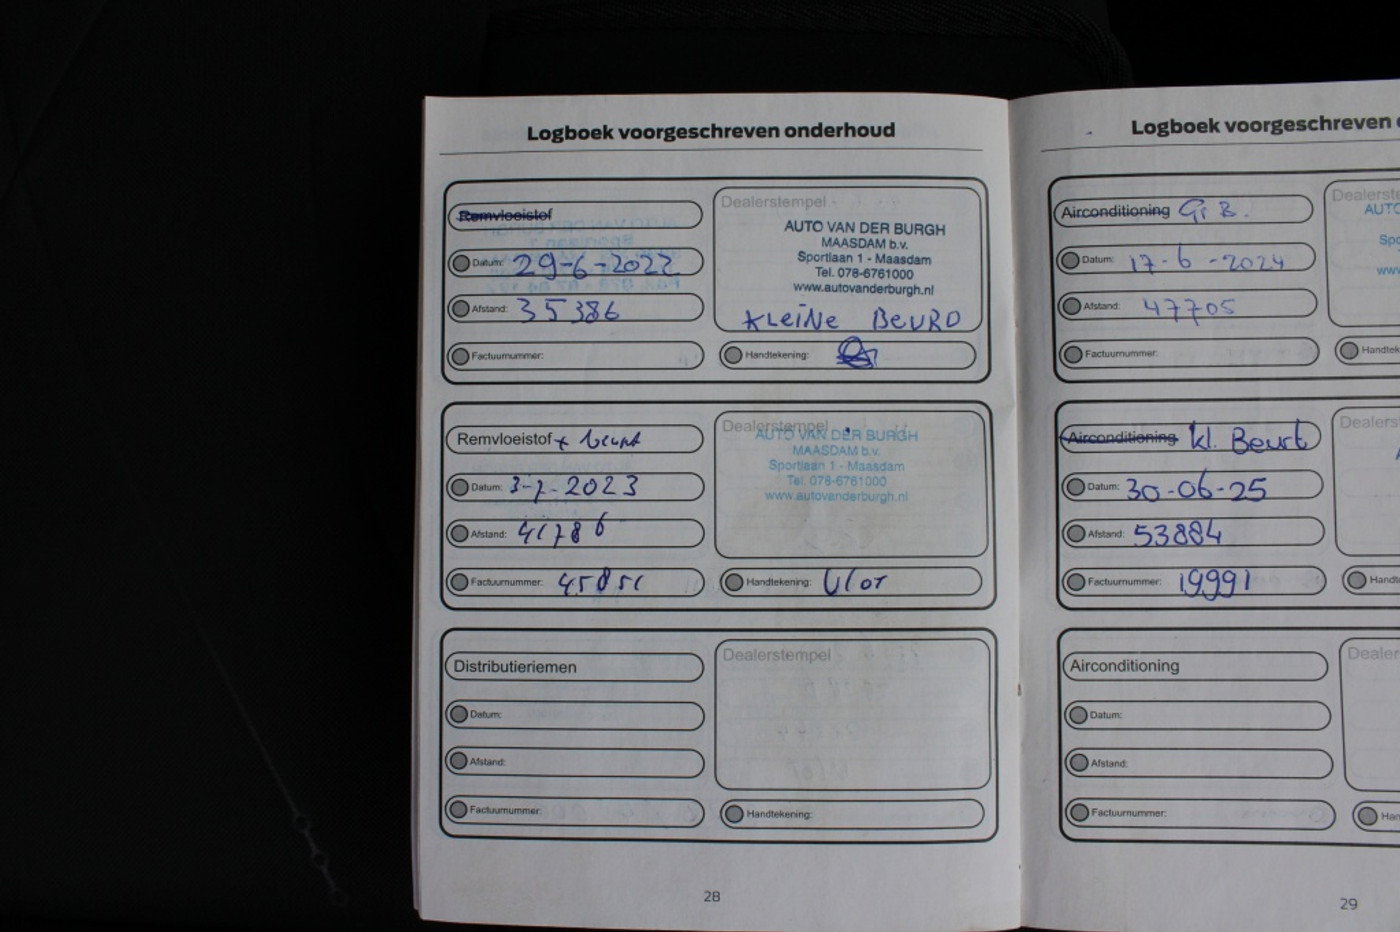 Logboek voorgeschreven onderhoud
Remvloeistof
Datum: 29-6-2022
Afstand: 35386
Factuurnummer:
Dealerstempel
AUTO VAN DER BURGH
MAASDAM b.v.
Sportlaan 1 - Maasdam
Tel. 078-6761000
www.autovanderburgh.nl
KLEINE BEURD
Handtekening:
Remvloeistof + beurt
Datum: 3-7-2023
Afstand: 41786
Factuurnummer:
Dealerstempel
AUTO VAN DER BURGH
MAASDAM b.v.
Sportlaan 1 - Maasdam
Tel. 078-6761000
www.autovanderburgh.nl
Handtekening:
Distributieriemen
Datum:
Afstand:
Factuurnummer:
Dealerstempel
Handtekening:
28
Logboek voorgeschreven
Airconditioning Gr B.
Datum: 17-6-2024
Afstand: 47705
Factuurnummer:
Dealerste
AUTO
Spo
www
Handtek
Airconditioning kl. Beurt
Datum: 30-06-25
Afstand: 53884
Factuurnummer: 19991
Dealers
Handt
Airconditioning
Datum:
Afstand:
Factuurnummer:
Dealer
Han
29